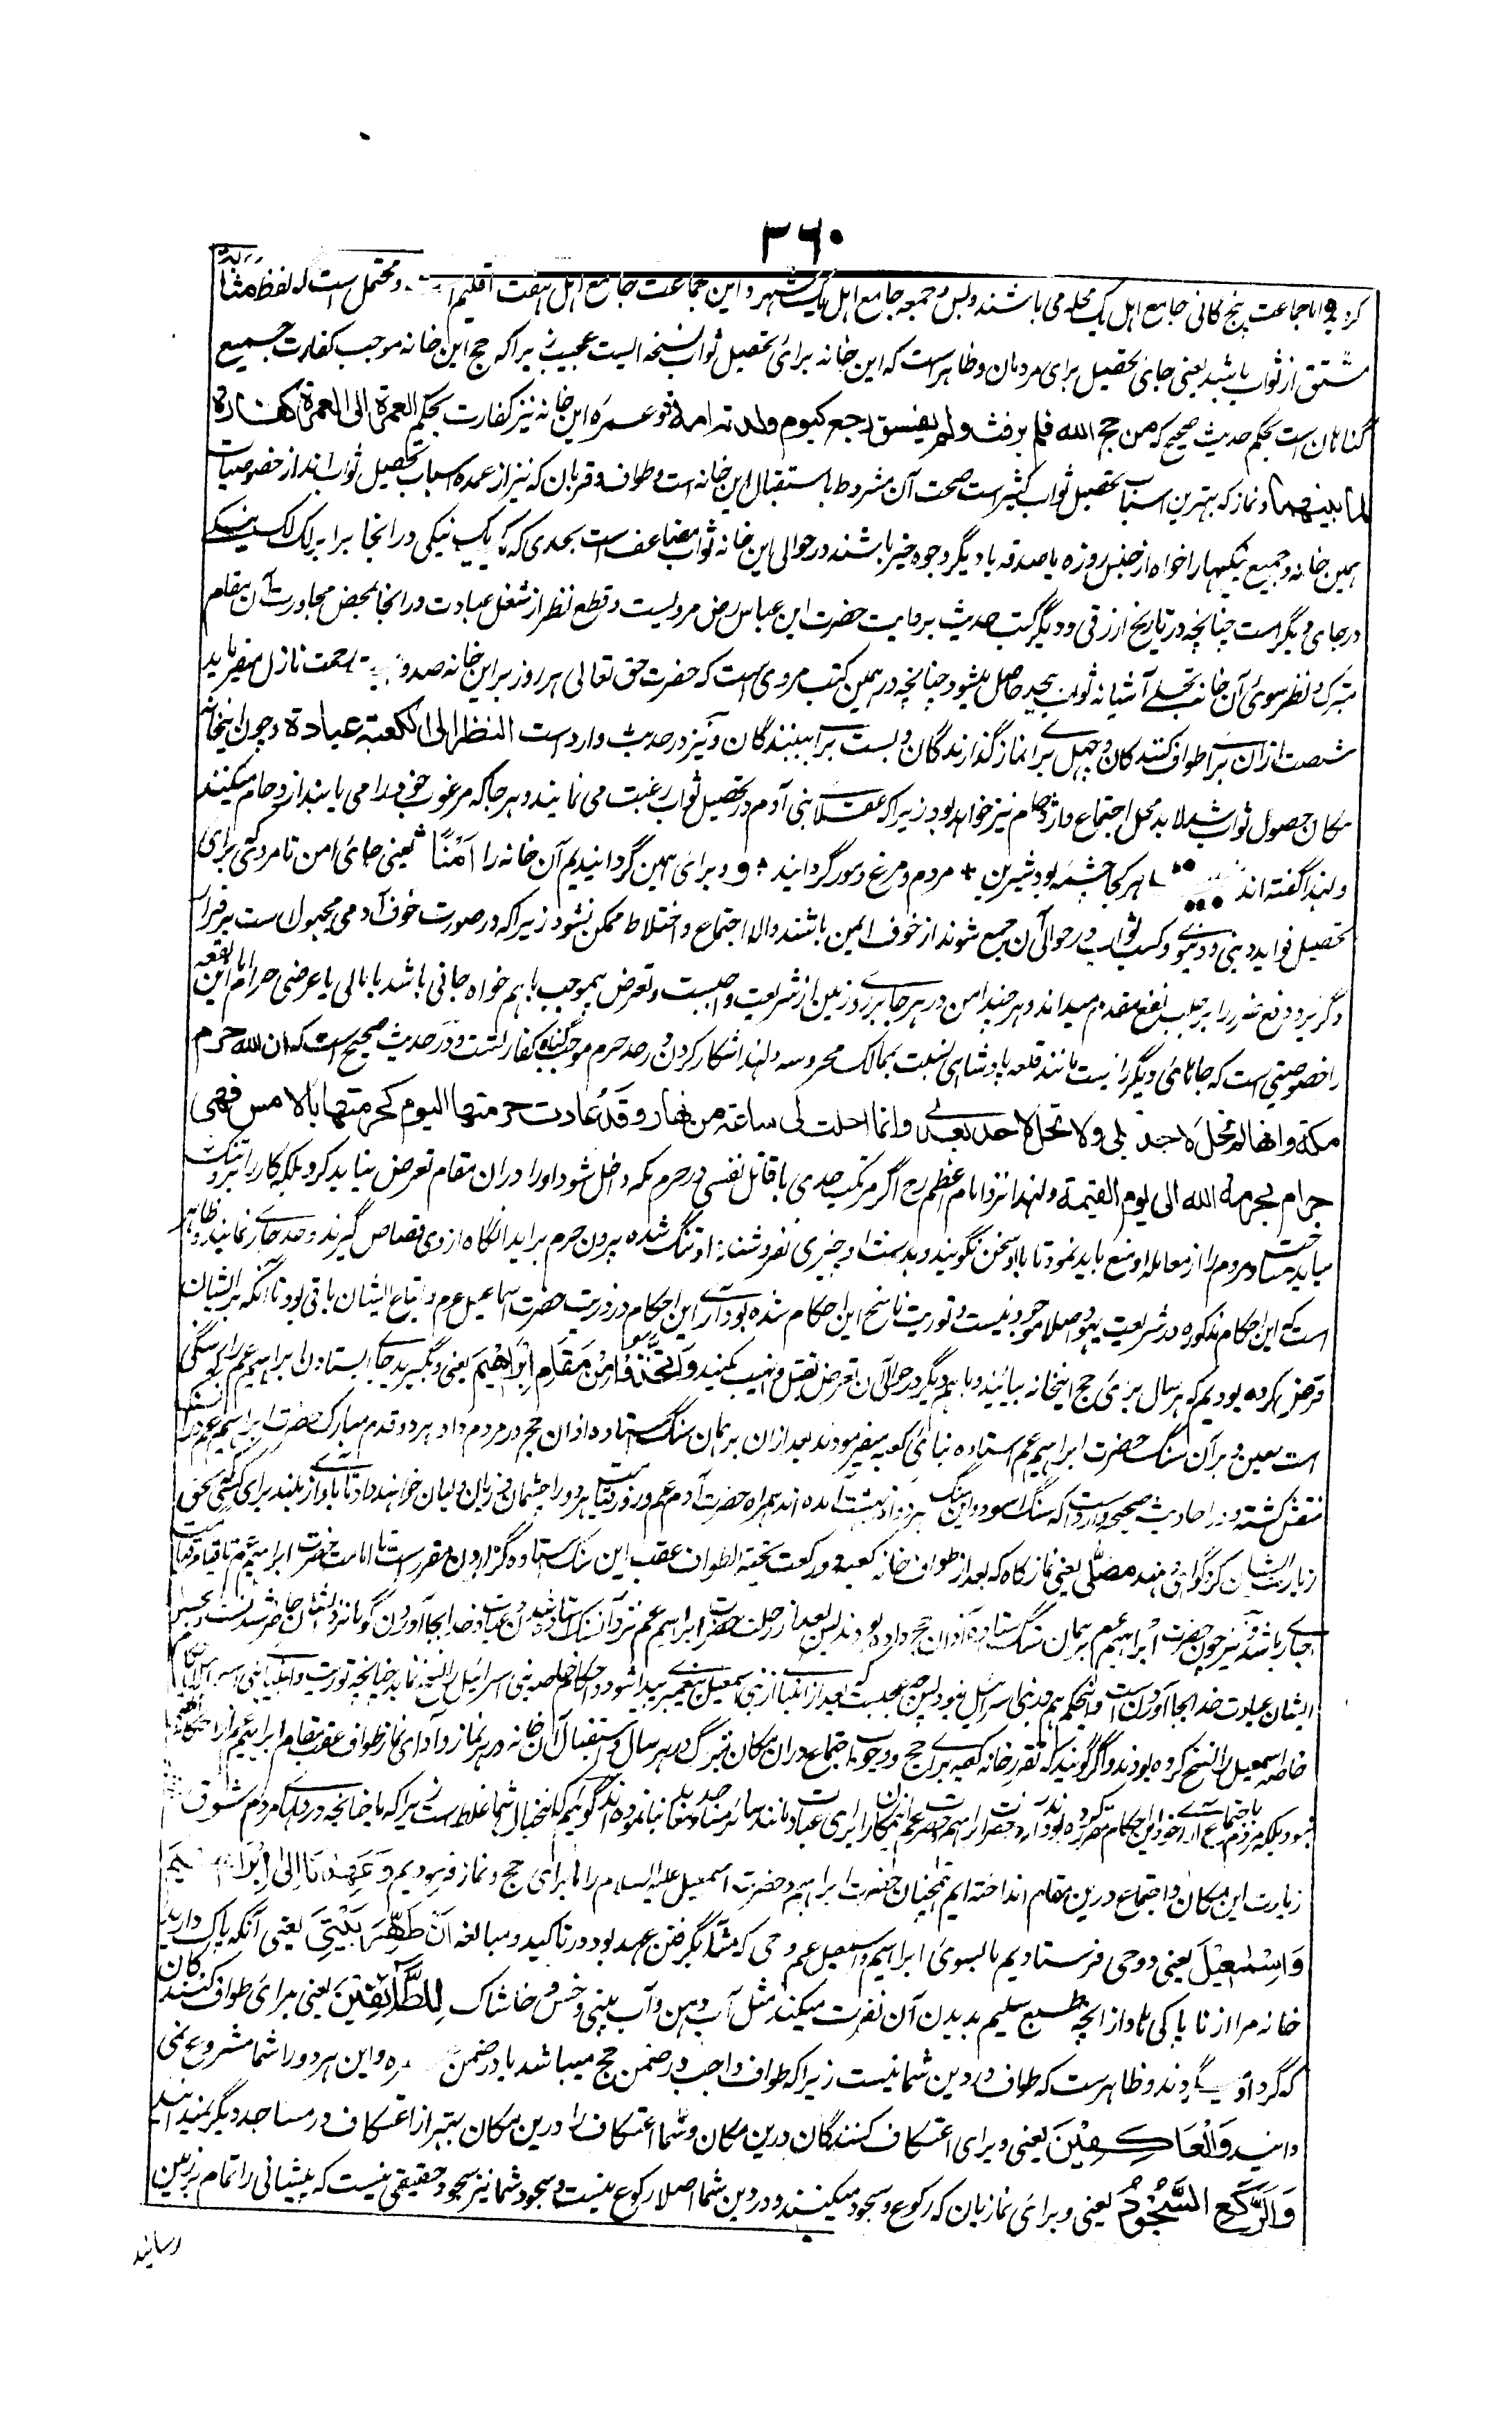 ۳۶۰
کردند و اما جماعت پنج گانی جامع اهل یک محله می باشند و بس و جمعه جامع اهل یک شهر و این جماعت جامع اهل هفت اقلیم است و محتمل است که لفظ مثابة
مشتق از ثواب باشد یعنی جای تحصیل برای مردمان و ظاهرست که این خانه برای تحصیل ثواب نسخه ایست عجیب زیراکه حج این خانه موجب کفارت جمیع
گناهان است بحکم حدیث صحیح که من حج الله فلم یرفث ولم یفسق رجع کیوم ولدته امه و عمره این خانه نیز کفارت بحکم العمرة الی العمرة کفارة
لما بینهما و نماز که بهترین اسباب تحصیل ثواب کثیر است صحت آن مشروط باستقبال این خانه است و طواف و قربان که نیز از عمده اسباب تحصیل ثواب اند از خصوصیات
همین خانه و جمیع نیکیها را خواه از جنس روزه یا صدقه یا دیگر وجوه خیر باشند در حوالی این خانه ثواب مضاعف است بحدی که یک نیکی در انجا برابر لک نیکی
در جای دیگر است چنانچه در تاریخ ازرقی و دیگر کتب حدیث بروایت حضرت ابن عباس رض مرویست و قطع نظر از شغل عبادت در انجا بمحض مجاورت آن مقام
متبرک و نظر سوی آن خانه تجلی آشیانه ثواب بیحد حاصل میشود چنانچه در همین کتب مروی است که حضرت حق تعالی هر روز بر این خانه صد و بیست رحمت نازل میفرماید
شصت از ان برای طواف کنندگان و چهل برای نماز گذارندگان و بست برای بینندگان و نیز در حدیث وارد است النظر الی الکعبة عبادة و چون اینخانه
مکان حصول ثواب شد لابد محل اجتماع و ازدحام نیز خواهد بود زیراکه عقلای بنی آدم در تحصیل ثواب رغبت می نمایند و هر جا که مرغوب خود را می یابند ازدحام میکنند
و لهذا گفته اند هر کجا چشمه بود شیرین + مردم و مرغ و مور گرد آیند + و برای همین گردانیدیم آن خانه را اَمْنًا یعنی جای امن تا مردم برای
تحصیل فواید دینی و دنیوی و کسب ثواب در حوالی آن جمع شوند از خوف ایمن باشند والا اجتماع و اختلاط ممکن نشود زیراکه در صورت خوف آدمی مجبول است بر فرار
و گریز و دفع ضرر را بر جلب نفع مقدم میداند و هر چند امن در هر جا بر روی زمین از شریعت واجبست و تعرض بیموجب باهم خواه جانی باشد یا مالی یا عرضی حرام اما این بقعه
را خصوصیتی است که جاهای دیگر را نیست مانند قلعه پادشاهی نسبت بممالک محروسه و لهذا شکار کردن در حد حرم موجب گناه و کفارتست و در حدیث صحیح است که ان الله حرم
مکة وانها لم تحل لاحد قبلی ولا تحل لاحد بعدی وانما احلت لی ساعة من نهار وقد عادت حرمتها الیوم کحرمتها بالامس فهی
حرام بحرمة الله الی یوم القیمة و لهذا نزد امام اعظم رح اگر مرتکب حدی یا قاتل نفسی در حرم مکه داخل شود او را دران مقام تعرض نباید کرد بلکه کار را برو تنگ
باید ساخت و مردم را از معامله او منع باید نمود تا با او سخن نگویند و بدست او چیزی نفروشند تا او تنگ شده بیرون حرم براید انگاه ازوی قصاص گیرند و حد جاری نمایند و ظاهر
است که این احکام مذکوره در شریعت یهود اصلا موجود نیست و توریت ناسخ این احکام شده بود آری این احکام در ذریت حضرت اسماعیل عم و اتباع ایشان باقی بود تا آنکه بر ایشان
فرض کرده بودیم که هر سال برای حج اینخانه بیایند و باهم دیگر در حوالی آن تعرض بقتل و نهب نکنند وَاتَّخِذُوْا مِنْ مَّقَامِ اِبْرَاهِیْمَ یعنی و بگیرید جای ایستادن ابراهیم عم را که سنگی
است معین و بر آن سنگ حضرت ابراهیم عم استاده بنای کعبه میفرمودند بعد ازان بر همان سنگ استاده اذان حج در مردم داد و هر دو قدم مبارک حضرت ابراهیم عم دران
منقش گشته و در احادیث صحیحه وارد است که سنگ اسود و این سنگ هر دو از بهشت آمده اند همراه حضرت آدم عم و روز قیامت هر دو را چشمان و زبان و لبان خواهند داد تا بآواز بلند برای کسی که بحق
زیارت ایشان کرد گواهی دهند مُصَلًّی یعنی نمازگاه که بعد از طواف خانه کعبه دو رکعت تحیة الطواف عقب این سنگ استاده گزاردن مقرر است تا امامت حضرت ابراهیم عم تا قیام قیامت
جاری باشد و نیز چون حضرت ابراهیم عم بر همان سنگ استاده اذان حج داده بودند پس بعد از رحلت حضرت ابراهیم عم نزد آن سنگ استاده شدن و عبادت خدا بجا آوردن گویا نزد ایشان حاضر شدنست و بحضور
ایشان عبادت خدا بجا آوردن است و این حکم هم در بنی اسرائیل نبود پس چه عجبست که بعد از انبیا از بنی اسمعیل پیغمبری پیدا شود و احکام خاصه بنی اسرائیل را نسخ نماید چنانچه توریت و انبیای بنی اسرائیل احکام
خاصه اسمعیل را نسخ کرده بودند و اگر گویند که تقرر خانه کعبه برای حج و وجوب اجتماع دران مکان متبرک در هر سال و استقبال آن خانه در هر نماز و ادای نماز طواف عقب مقام ابراهیم عم از احکام الهی
نبود بلکه مردم باجتماع آرای خود این احکام مقرر کرده بودند و حضرت ابراهیم عم این مکان را برای عبادت مانند سائر مساجد و معابد بنا نموده اند گوئیم که اینخیال شما غلط است زیراکه ما چنانچه در دلهای مردم شوق
زیارت این مکان و اجتماع درین مقام انداخته ایم همچنان حضرت ابراهیم و حضرت اسمعیل علیه السلام را برای حج و نماز فرمودیم وَعَهِدْنَا اِلٰی اِبْرَاهِیْمَ
وَاِسْمٰعِیْلَ یعنی و وحی فرستادیم ما بسوی ابراهیم و اسمعیل عم وحی که مشابه گرفتن عهد بود در تاکید و مبالغه اَنْ طَهِّرَا بَیْتِیَ یعنی آنکه پاک دارید
خانه مرا از ناپاکی ها و از انچه طبع سلیم بدیدن آن نفرت میکند مثل آب دهن و آب بینی و خس و خاشاک لِلطَّآئِفِیْنَ یعنی برای طواف کنندگان
که گرد او میگردند و ظاهرست که طواف در دین شما نیست زیراکه طواف واجب در ضمن حج میباشد یا در ضمن عمره و این هر دو را شما مشروع نمی
دانید وَالْعَاکِفِیْنَ یعنی و برای اعتکاف کنندگان درین مکان و شما اعتکاف را درین مکان بهتر از اعتکاف در مساجد دیگر نمیدانید
وَالرُّکَّعِ السُّجُوْدِ یعنی و برای نمازیان که رکوع و سجود میکنند و در دین شما اصلا رکوع نیست و سجود شما نیز سجود حقیقی نیست که پیشانی را تمام بر زمین
رسانید